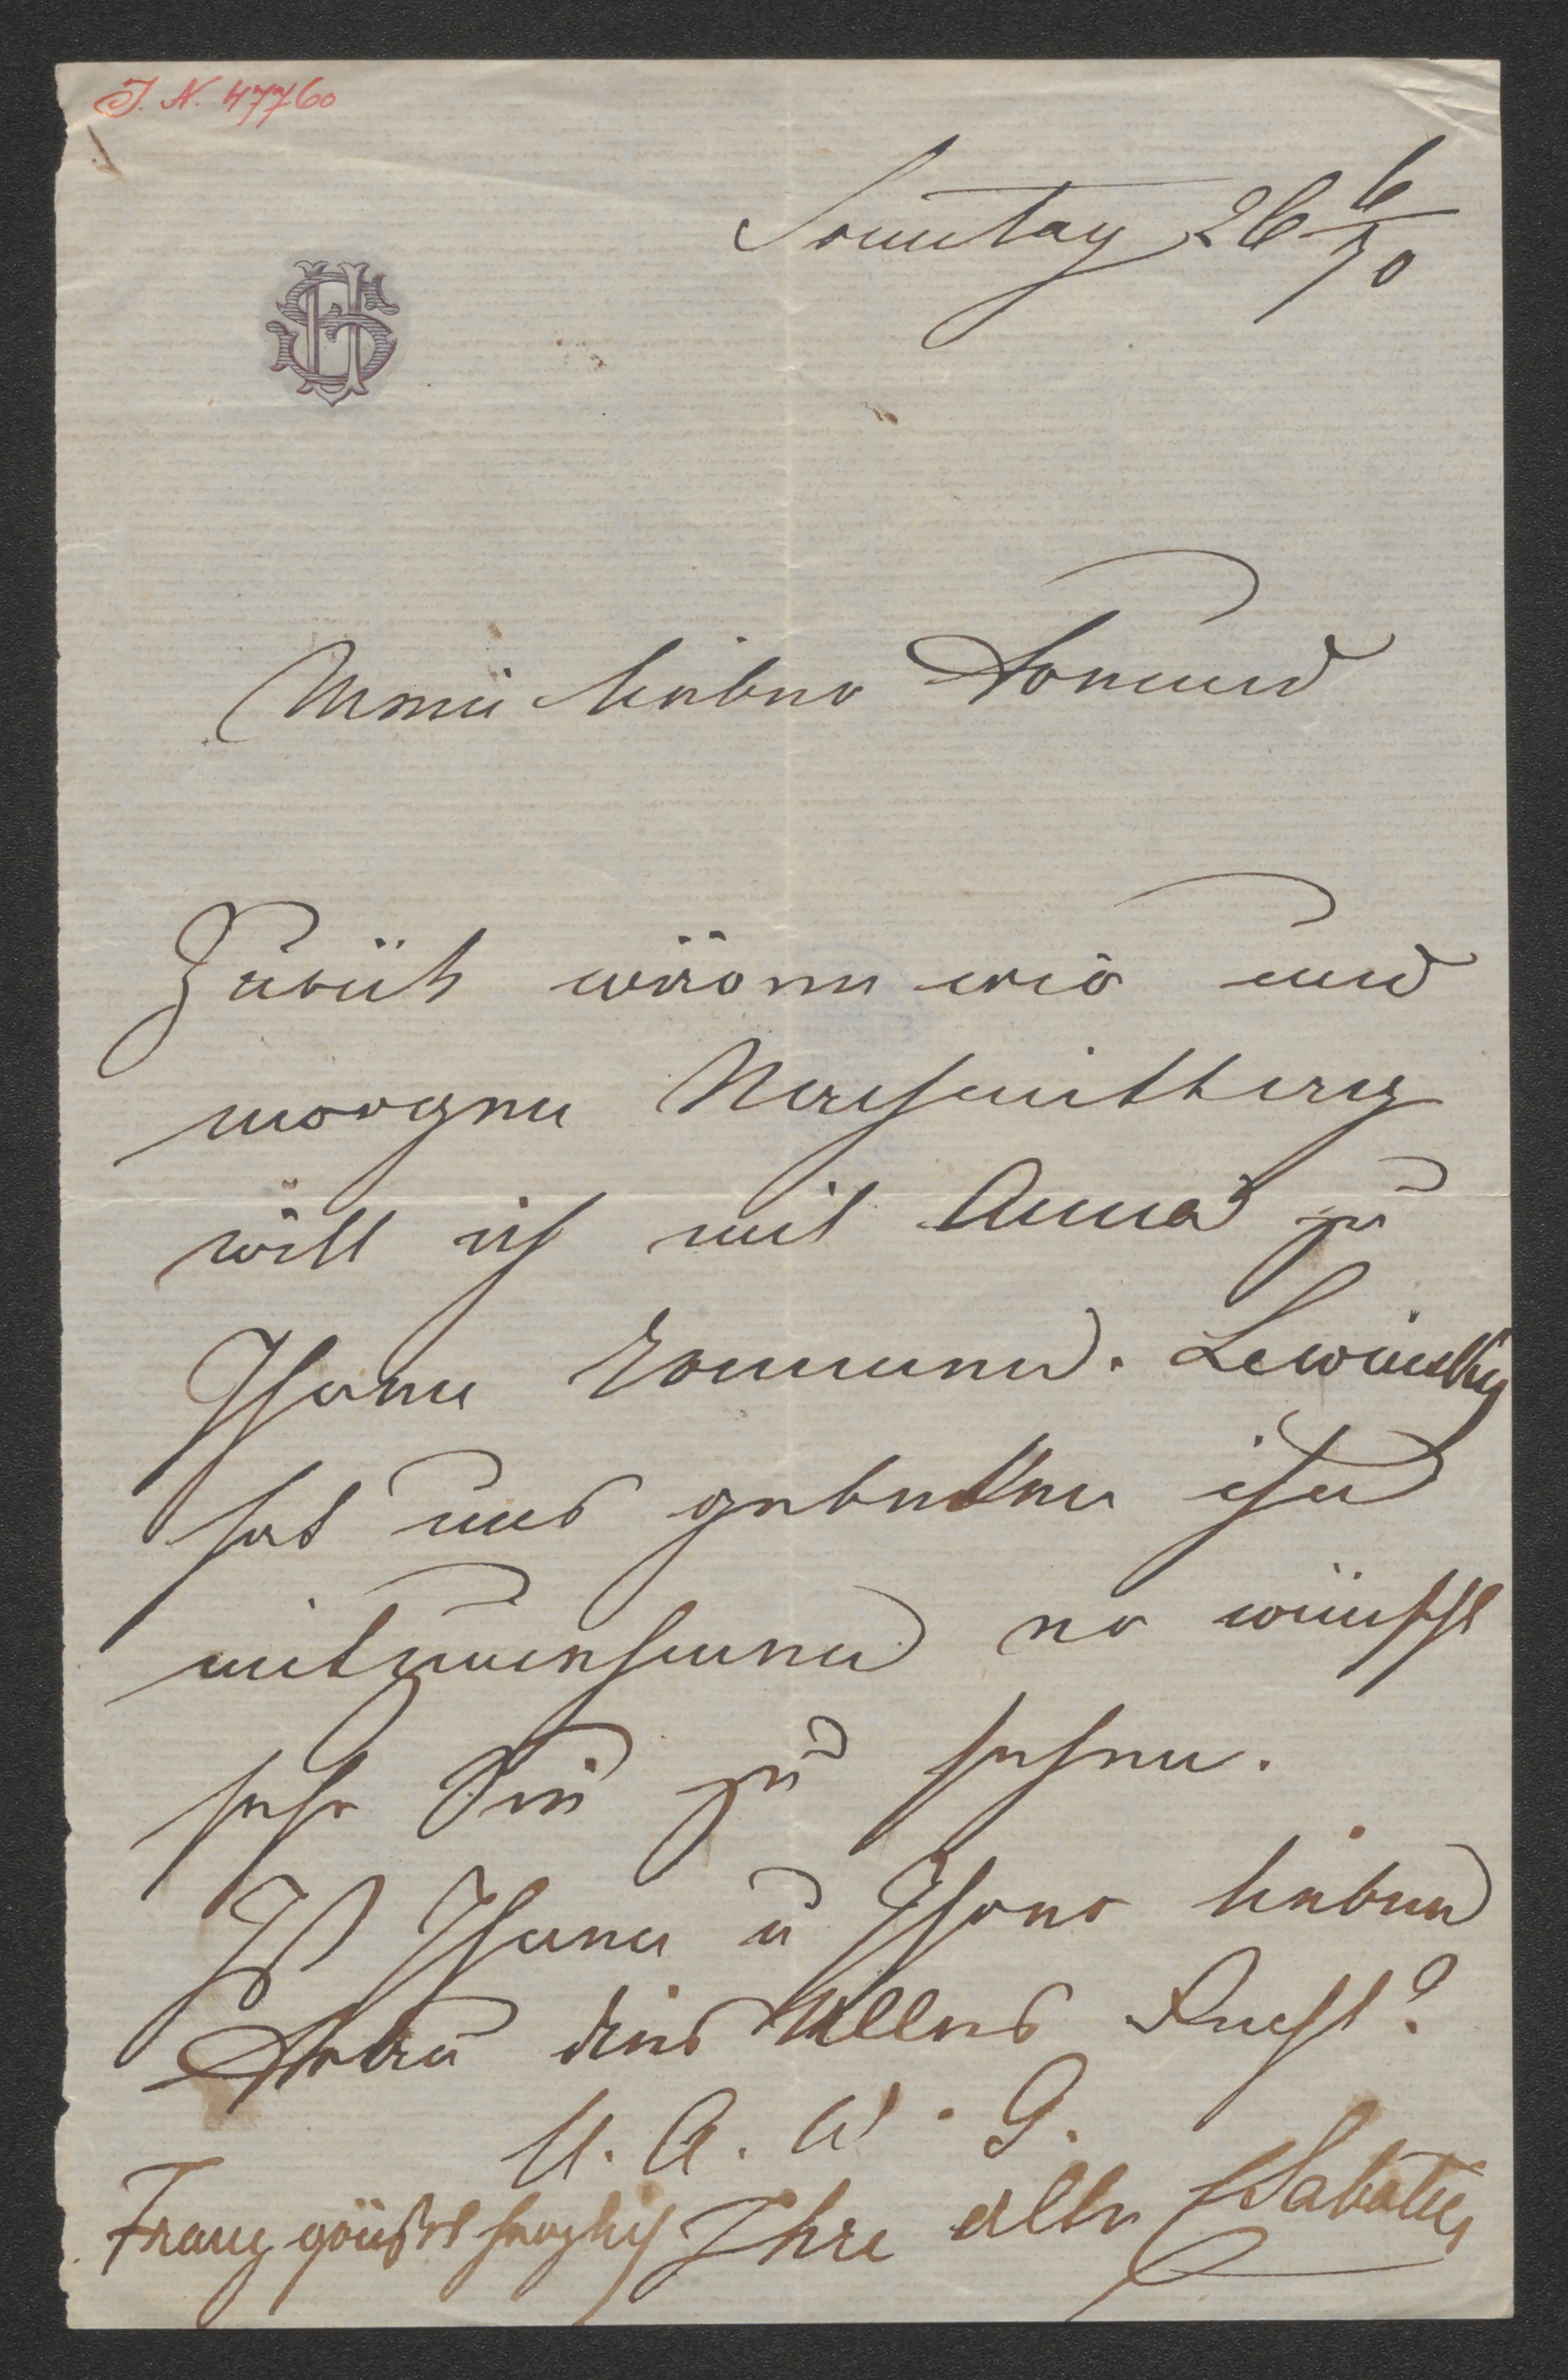 J. N. 47760
Sonntag 26 6/70
HS
Mein lieber Freund
Zurück wären wir und
morgen Nachmittag
will ich mit Anna zu
Ihnen kommen. Lewinsky
hat uns gebeten ihn
mitzunehmen er wünscht
sehr Sie zu sehen.
Ist Ihnen u Ihrer lieben
Frau dies Alles Recht?
U. A. W. G.
Franz grüßt herzlich Ihre alte Sabatier